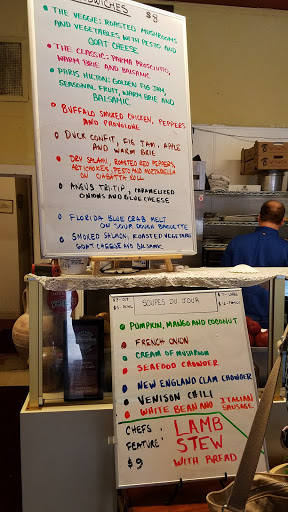 $8
• THE VEGGIE: ROASTED MUSHROOMS
AND VEGETABLES WITH PESTO AND
GOAT CHEESE
• THE CLASSIC: PARMA PROSCIUTTO,
WARM BRIE AND BALSAMIC
• PARIS HILTON: GOLDEN FIG JAM,
SEASONAL FRUIT, WARM BRIE AND
BALSAMIC
• BUFFALO SMOKED CHICKEN, PEPPERS
AND PROVOLONE
• DUCK CONFIT, FIG JAM, APPLE
AND WARM BRIE
• DRY SALAMI, ROASTED RED PEPPERS,
ARTICHOKES, PESTO AND MOZZARELLA
ON CIABATTA ROLL
• ANGUS TRI-TIP, CARAMELIZED
ONIONS AND BLUE CHEESE
• FLORIDA BLUE CRAB MELT
ON SOUR DOUGH BAGUETTE
• SMOKED SALMON, ROASTED VEGETABLES
GOAT CHEESE AND BALSAMIC
SOUPES DU JOUR
• PUMPKIN, MANGO AND COCONUT
• FRENCH ONION
• CREAM OF MUSHROOM
• SEAFOOD CHOWDER
• NEW ENGLAND CLAM CHOWDER
• VENISON CHILI
• WHITE BEAN AND ITALIAN
SAUSAGE
CHEFS LAMB
FEATURE: STEW
$9 WITH BREAD